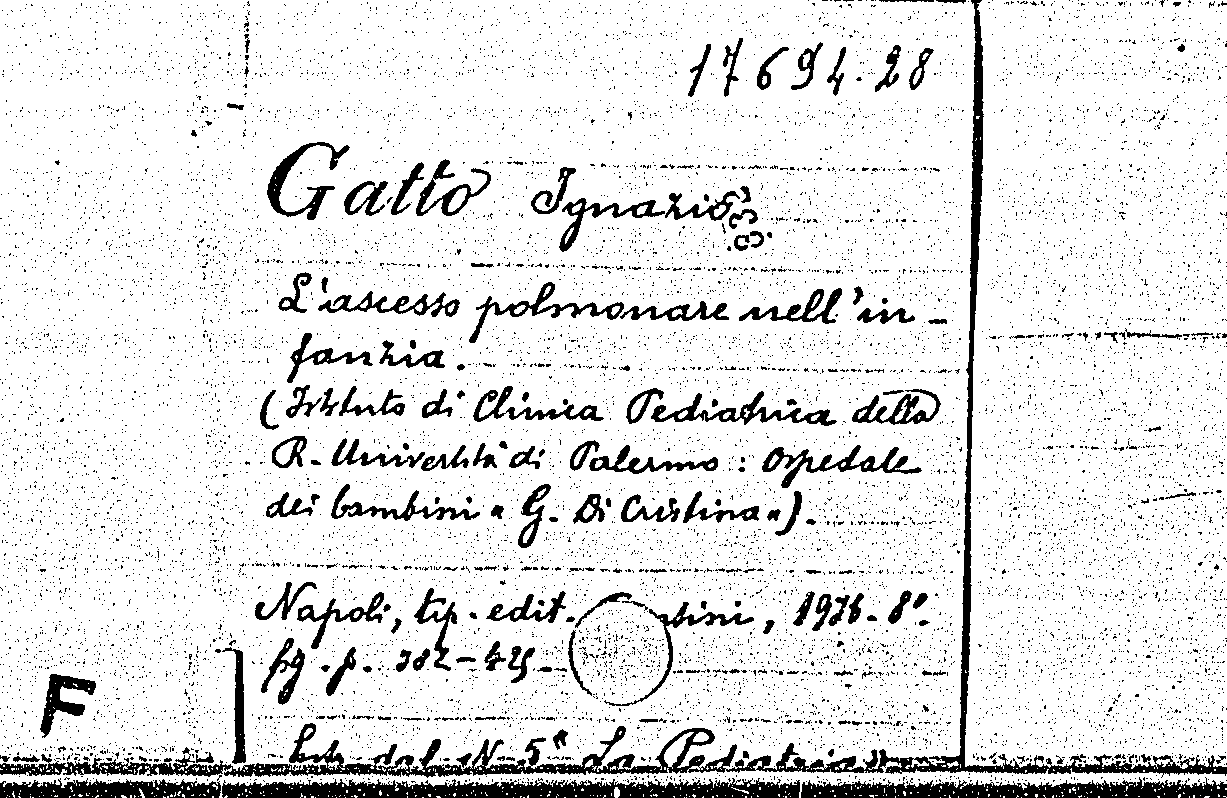 17694.28
Gatto Ignazio
L'ascesso polmonare nell'in-
fanzia.
(Istituto di Clinica Pediatrica della
R. Università di Palermo: Ospedale
dei bambini "G. Di Cristina").
Napoli, tip. edit. 1936. 8º.
fig. p. 382-425
F
Estr. dal N. 5 "La Pediatria"